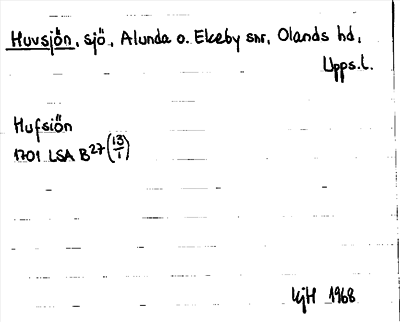 Huvsjön, sjö, Alunda o. Ekeby snr, Olands hd,
Upps.l.
Hufsiön
1701 LSA B27 (13/1)
KjH 1968